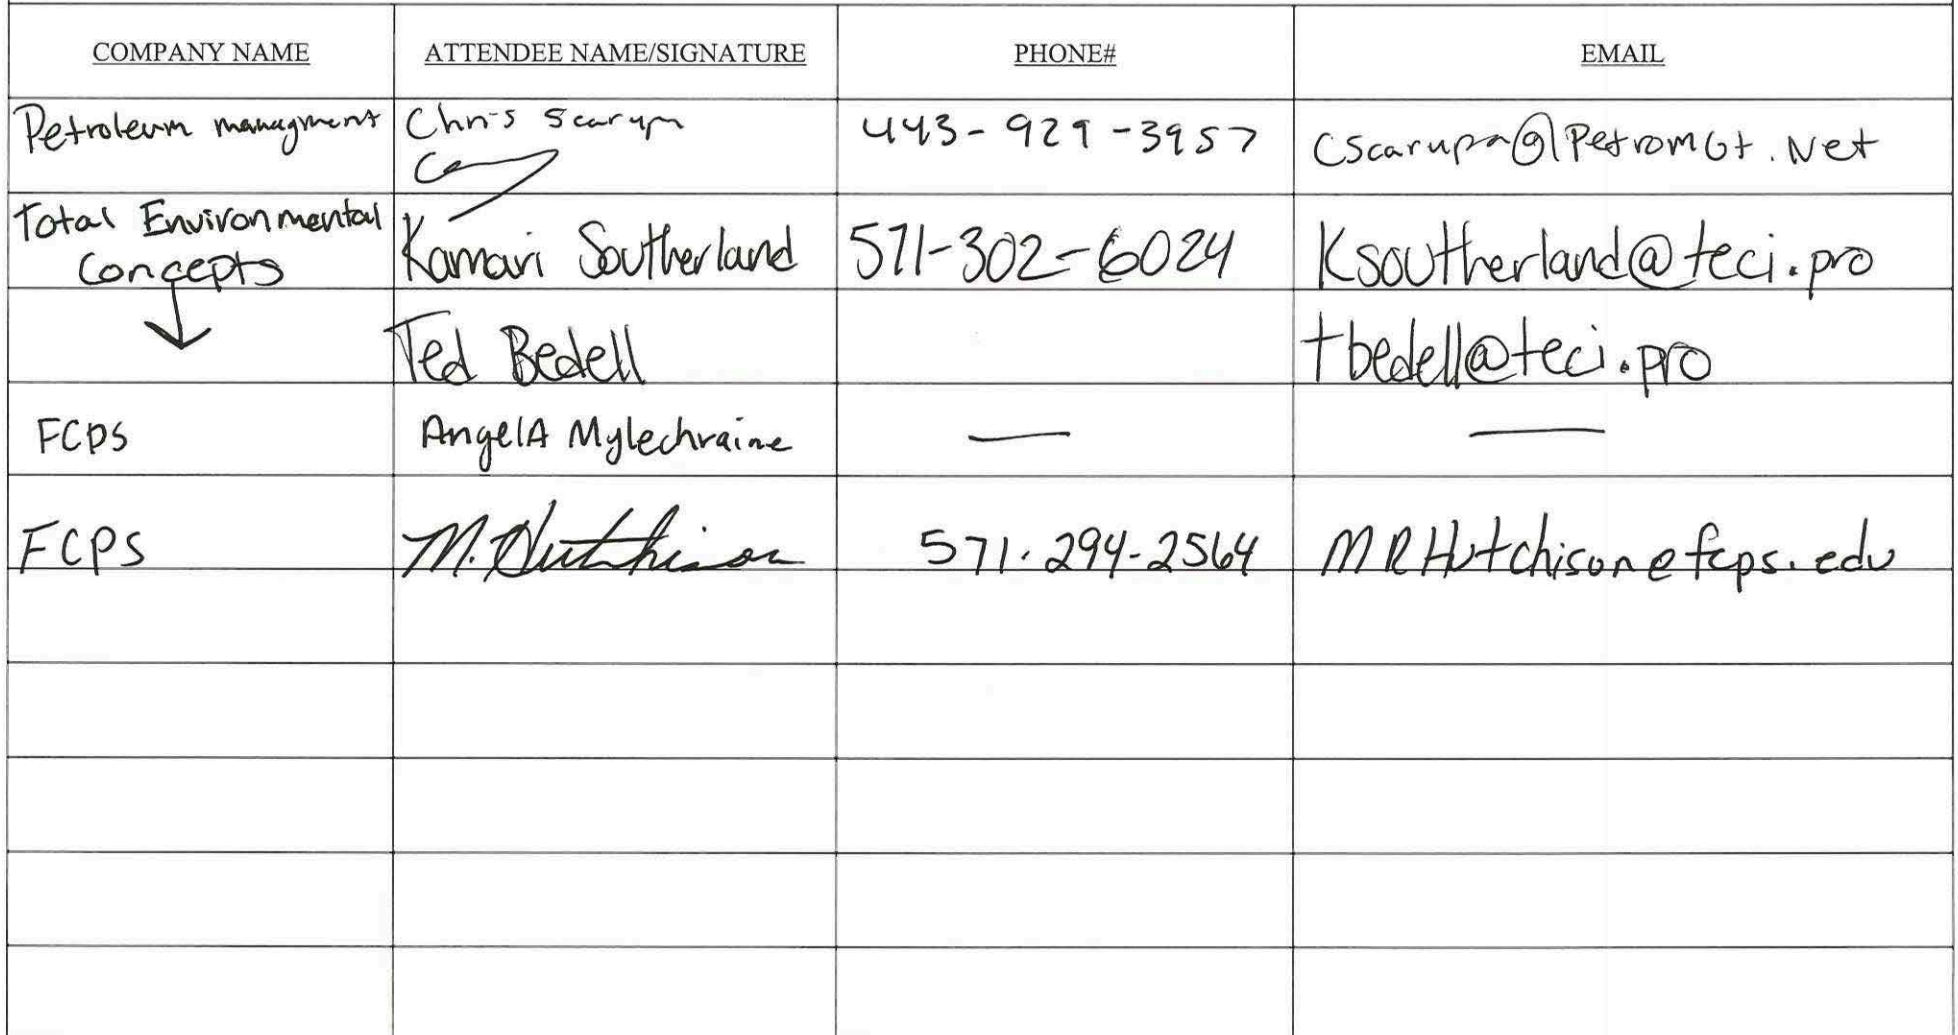 COMPANY NAME ATTENDEE NAME/SIGNATURE PHONE# EMAIL
Petroleum managment Chris Scarupa 443-929-3957 cscarupa@PetromGt.Net
Total Environmental Concepts Kamari Southerland 571-302-6024 Ksoutherland@teci.pro
Ted Bedell tbedell@teci.pro
FCPS AngelA Mylechraine — —
FCPS M. Hutchison 571-294-2564 MRHutchison@fcps.edu